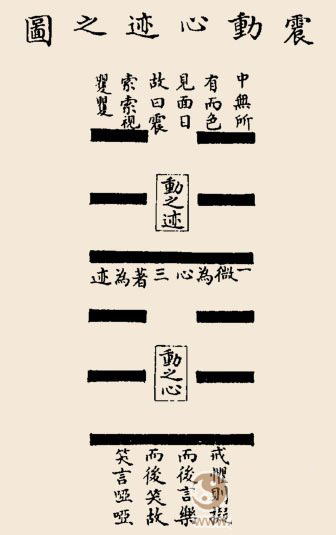 震動心迹之圖
中無所
有而色
見面日
故曰震
索索視
矍矍
動之迹
一微為心三著為迹
動之心
戒懼則擬
而後言樂
而後笑故
笑言啞啞